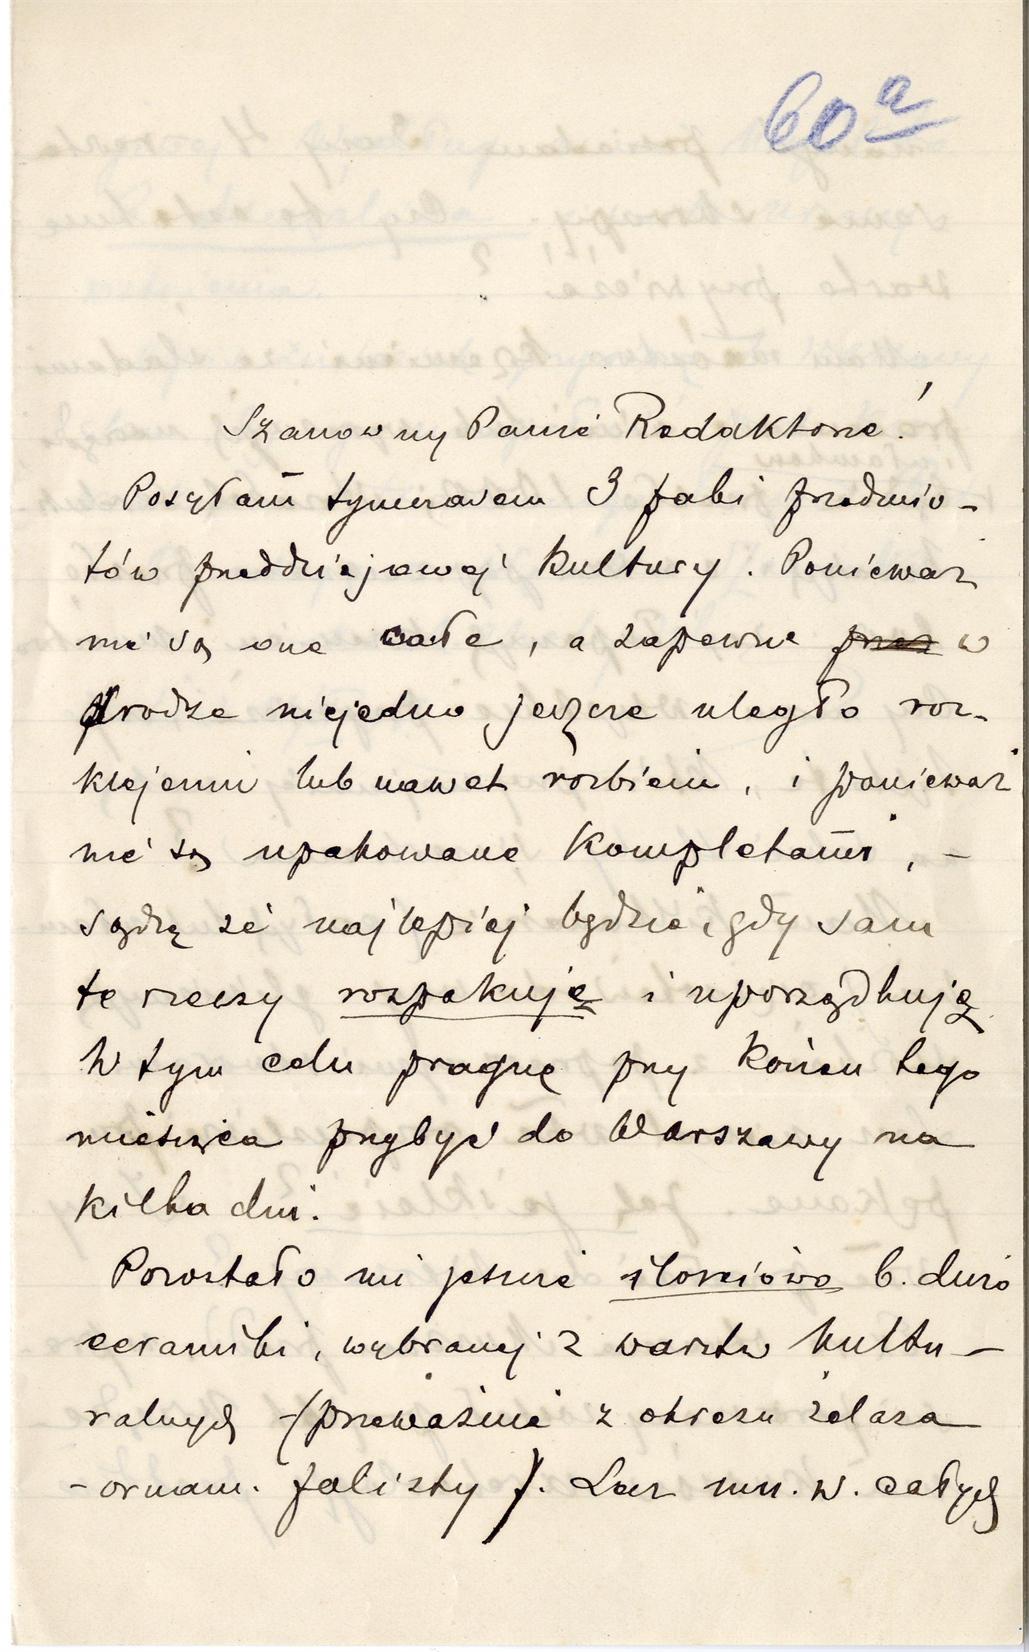 60a
Szanowny Panie Redaktorze!
Posyłam tymczasem 3 paki przedmio-
tów przeddziejowej kultury. Ponieważ
nie są one całe, a zapewne przez w
drodze niejedno jeszcze uległo roz-
klejeniu lub nawet rozbiciu, i ponieważ
nie są upakowane kompletami, -
sądzę że najlepiej będzie, gdy sam
te rzeczy rozpakuję i uporządkuję
W tym celu pragnę przy końcu tego
miesiąca przybyć do Warszawy na
kilka dni.
Pozostało mi jeszcze ilościowo b. dużo
ceramiki, wybranej z warstw kultu-
ralnych (przeważnie z okresu żelaza
- ornam. falisty). Lecz mn. w. całych